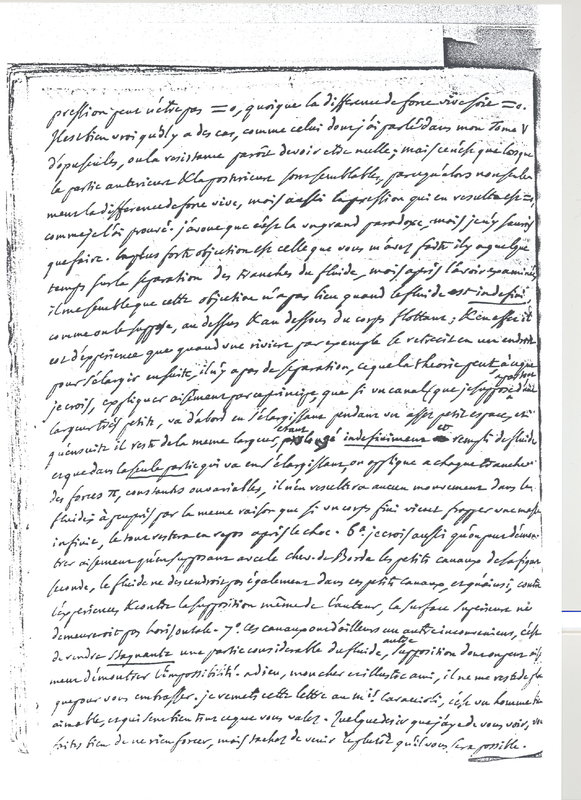 pression peut n'être pas = 0, quoique la difference de force vive soit = 0.
Il est bien vrai qu'il y a des cas, comme celui dont j'ai parlé dans mon Tome V
d'opuscules, ou la resistance paroît devoir etre nulle; mais c'est que lorsque
la partie anterieure & la posterieure sont semblables, parce qu'alors non seule
ment la difference de force vive, mois aussi la pression qui en resulte est = 0,
comme je l'ai prouvé. j'avoue que c'est la un grand paradoxe, mois je n'y saurois
que faire. la plus forte objection est celle que vous m'avez faite il y a quelque
temps sur la separation des tranches du fluide, mois après l'avoir examinée
il me semble que cette objection n'a pas lieu quand le fluide est indefini,
comme on le suppose, au dessus & au dessous du corps flottant; & en effet il
est d'experience que quand une riviere par exemple se retrecit en un endroit
pour s'élargir ensuite, il n'y a pas de separation, ce que la theorie peut
je crois, expliquer aisement par ce principe, que si un canal (que je suppose
largeur très petite, va d'abord en s'élargissant pendant un assez petit espace, et
qu'ensuite il reste de la meme largeur, étant prolongé indefiniment et rempli de fluide
et que dans la seule partie qui va en s'élargissant, on applique a chaque tranche
des forces π, constantes ou variables, il n'en resultera aucun mouvement dans le
fluide, à peu près par la meme raison que si un corps fini vient frapper une masse
infinie, le tout restera en repos après le choc. 6.° je crois aussi qu'on peut démon
trer aisement qu'en supposant avec le chev. de Borda les petits canaux de sa figure
seconde, le fluide ne descendroit pas également dans ces petits canaux, et qu'ainsi, contre
l'experience & contre la supposition même de l'auteur, la surface superieure ne
demeureroit pas horisontale. 7.° ces canaux ont d'ailleurs un autre inconvenient, c'est
de rendre stagnante une partie considerable du fluide, supposition dont on peut aisé
ment démontrer l'impossibilité. adieu, mon cher et illustre ami, il ne me reste
que pour vous embrasser. je remets cette lettre au m.is Caraccioli, c'est un homme très
aimable, et qui sent bien tout ce que vous valez. Quelque desir que j'aye de vous voir, ne
faites rien de ne rien forcer, mais tachez de venir le plutôt qu'il vous sera possible.